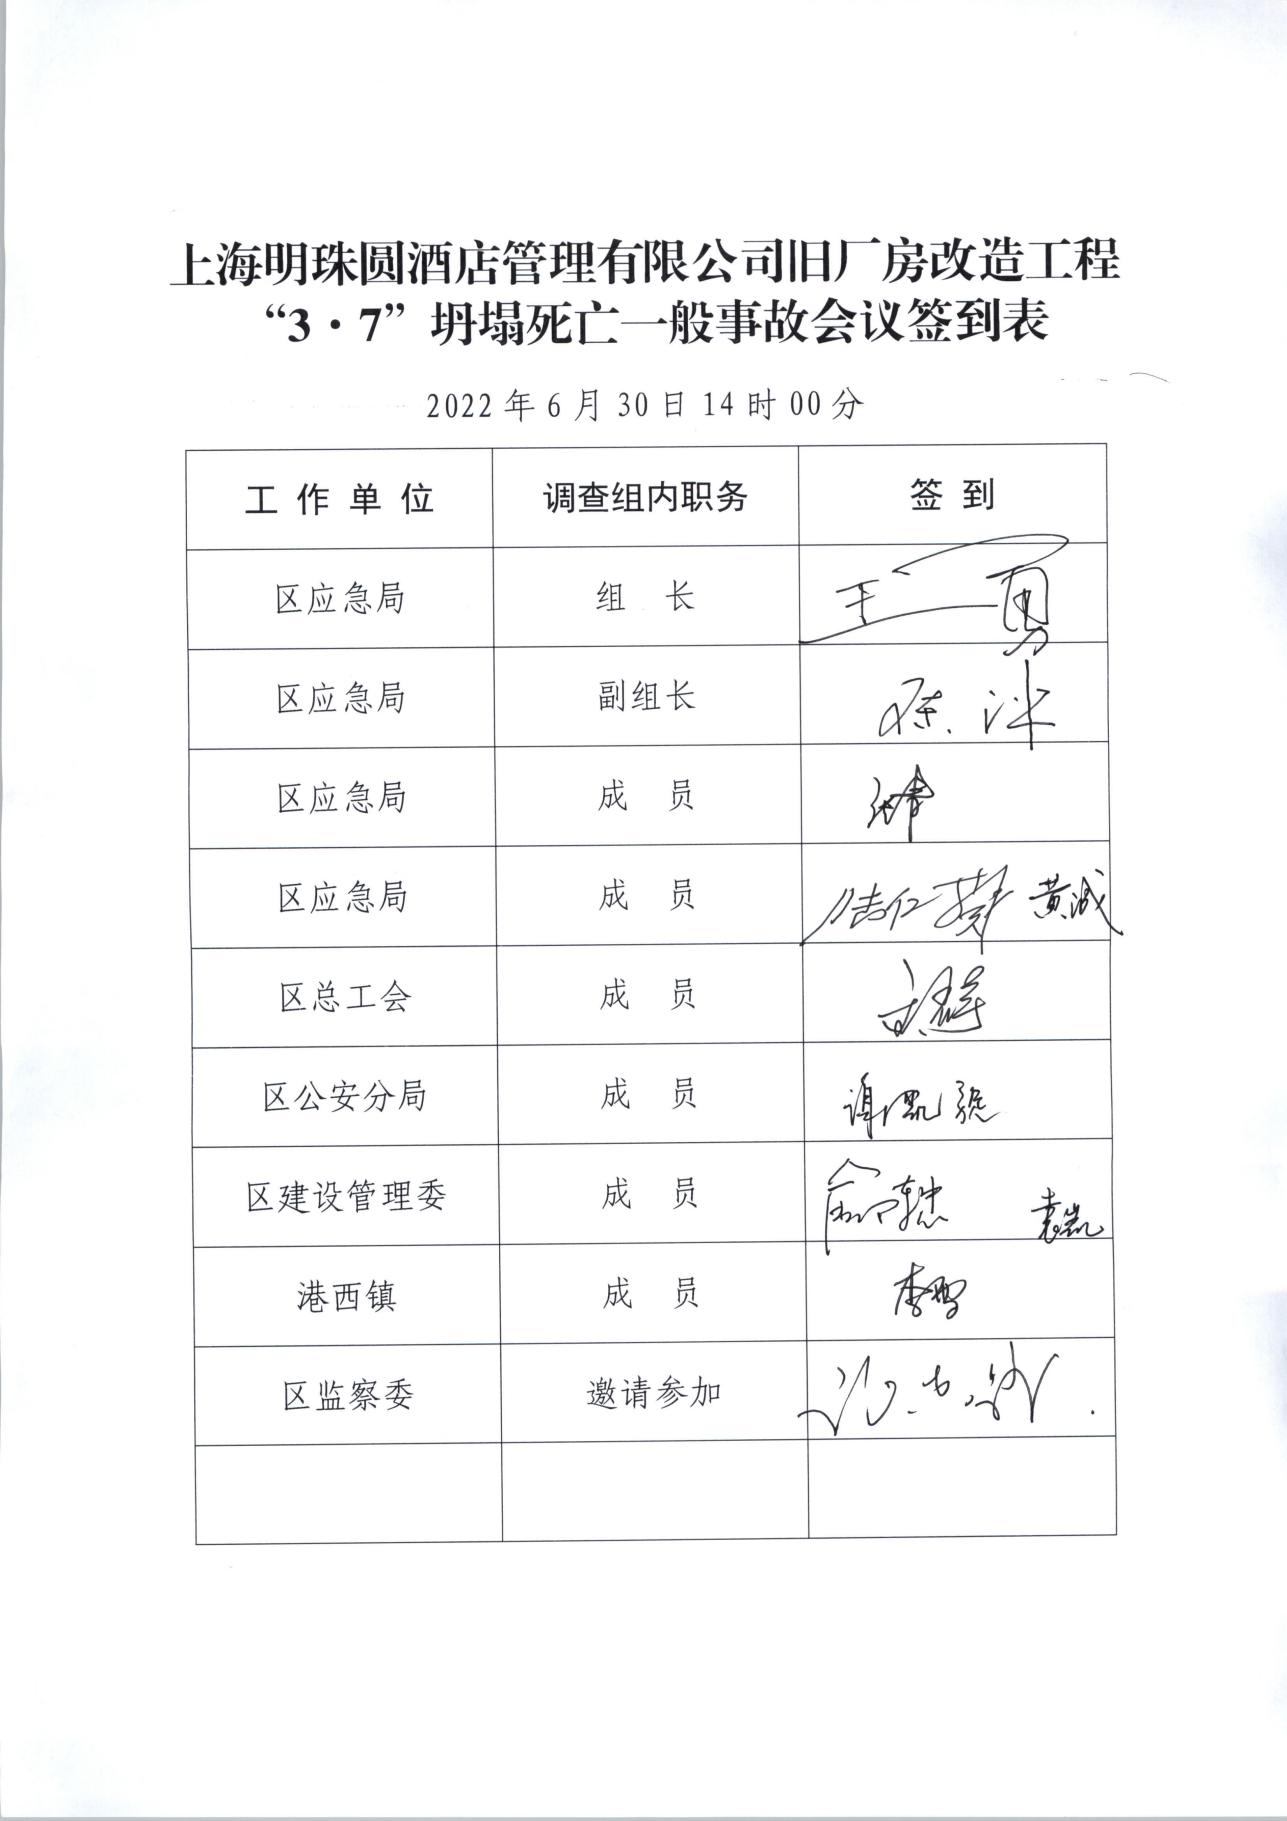 上海明珠圆酒店管理有限公司旧厂房改造工程
“3·7”坍塌死亡一般事故会议签到表
2022年6月30日14时00分
工作单位 调查组内职务 签到
区应急局 组长 王勇
区应急局 副组长
区应急局 成员
区应急局 成员 黄诚
区总工会 成员
区公安分局 成员
区建设管理委 成员 袁凯
港西镇 成员
区监察委 邀请参加